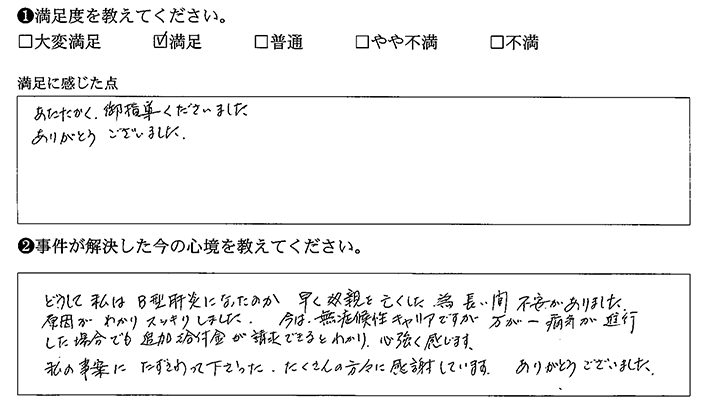 ❶満足度を教えてください。
□大変満足 ☑満足 □普通 □やや不満 □不満
満足に感じた点
あたたかく、御指導くださいました
ありがとうございました。
❷事件が解決した今の心境を教えてください。
どうして私はB型肝炎になったのか 早く双親を亡くした為 長い間 不安がありました。
原因がわかりスッキリしました。 今は、無症候性キャリアですが 万が一病気が進行
した場合でも追加給付金が請求できるとわかり、心強く感じます。
私の事案にたずさわって下さった、たくさんの方々に感謝しています。 ありがとうございました。